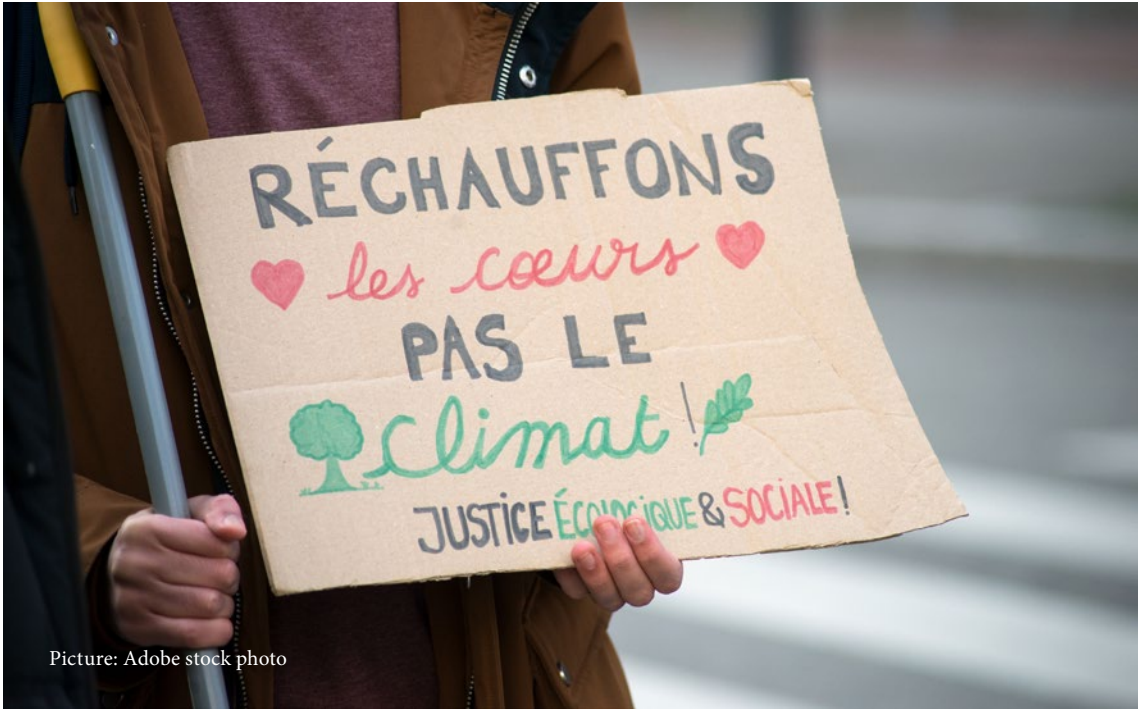 RÉCHAUFFONS
les cœurs
PAS LE
climat !
JUSTICE ÉCOLOGIQUE & SOCIALE !
Picture: Adobe stock photo